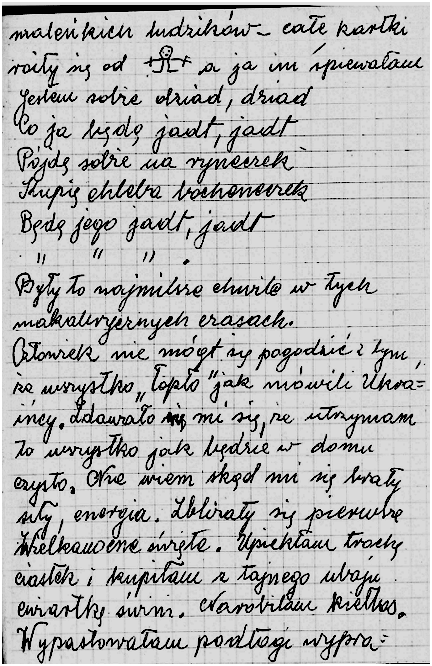 maleńkich ludzików – całe kartki
roiły się od a ja im śpiewałam
Jestem sobie dziad, dziad
Co ja będę jadł, jadł
Pójdę sobie na ryneczek
Kupię chleba bocheneczek
Będę jego jadł, jadł
" " " .
Były to najmilsze chwile w tych
makabrycznych czasach.
Człowiek nie mógł się pogodzić z tym,
że wszystko „łopło" jak mówili Ukra=
ińcy. Zdawało się mi się, że utrzymam
to wszystko jak będzie w domu
czysto. Nie wiem skąd mi się brały
siły, energia. Zbliżały się pierwsze
Wielkanocne święta. Upiekłam trochę
ciastek i kupiłam z tajnego uboju
ćwiartkę świni. Narobiłam kiełbas.
Wypastowałam podłogi wypra=